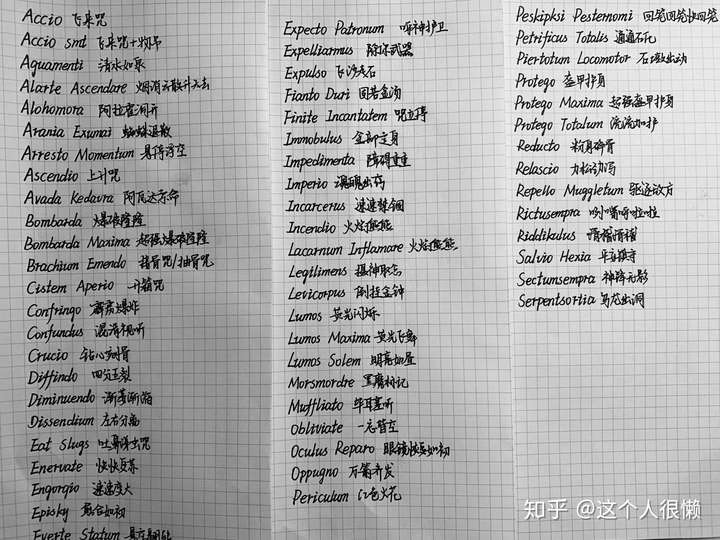 Accio 飞来咒
Accio smt 飞来咒+物品
Aguamenti 清水如泉
Alarte Ascendare 烟消云散升天去
Alohomora 阿拉霍洞开
Arania Exumai 蜘蛛退散
Arresto Momentum 悬停浮空
Ascendio 上升咒
Avada Kedavra 阿瓦达索命
Bombarda 爆破隆隆
Bombarda Maxima 超强爆破隆隆
Brachium Emendo 接骨咒/抽骨咒
Cistem Aperio 开箱咒
Confringo 霹雳爆炸
Confundus 混淆视听
Crucio 钻心剜骨
Diffindo 四分五裂
Diminuendo 渐渐渐缩
Dissendium 左右分离
Eat Slugs 吐鼻涕虫咒
Enervate 快快复苏
Engorgio 速速变大
Episky 愈合如初
Everte Statum
Expecto Patronum 呼神护卫
Expelliarmus 除你武器
Expulso 飞沙走石
Fianto Duri 固若金汤
Finite Incantatem 咒立停
Immobulus 全部定身
Impedimenta 障碍重重
Imperio 魂魄出窍
Incarcerus 速速禁锢
Incendio 火焰熊熊
Lacarnum Inflamare 火焰熊熊
Legilimens 摄神取念
Levicorpus 倒挂金钟
Lumos 荧光闪烁
Lumos Maxima 荧光飞舞
Lumos Solem 明亮如昼
Morsmordre 黑魔标记
Muffliato 毕耳塞听
Obliviate 一忘皆空
Oculus Reparo 眼镜恢复如初
Oppugno 万箭齐发
Periculum 红色火花
Peskipksi Pesternomi 回笼回笼快回笼
Petrificus Totalis 通通石化
Piertotum Locomotor 石墩出动
Protego 盔甲护身
Protego Maxima 超强盔甲护身
Protego Totalum 流流加护
Reducto 粉身碎骨
Relascio 力松劲泻
Repello Muggletum 驱逐敌方
Rictusempra 咧嘴呼啦啦
Riddikulus 滑稽滑稽
Salvio Hexia 平安镇守
Sectumsempra 神锋无影
Serpentsortia 乌龙出洞
知乎 @这个人很懒